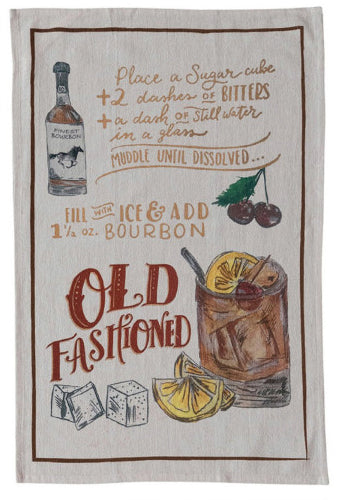 FINEST
BOURBON
Place a Sugar cube
+2 dashes OF BITTERS
+a dash OF Still water
in a glass
MUDDLE UNTIL DISSOLVED...
FILL WITH ICE & ADD
1½ oz. BOURBON
OLD
FASHIONED